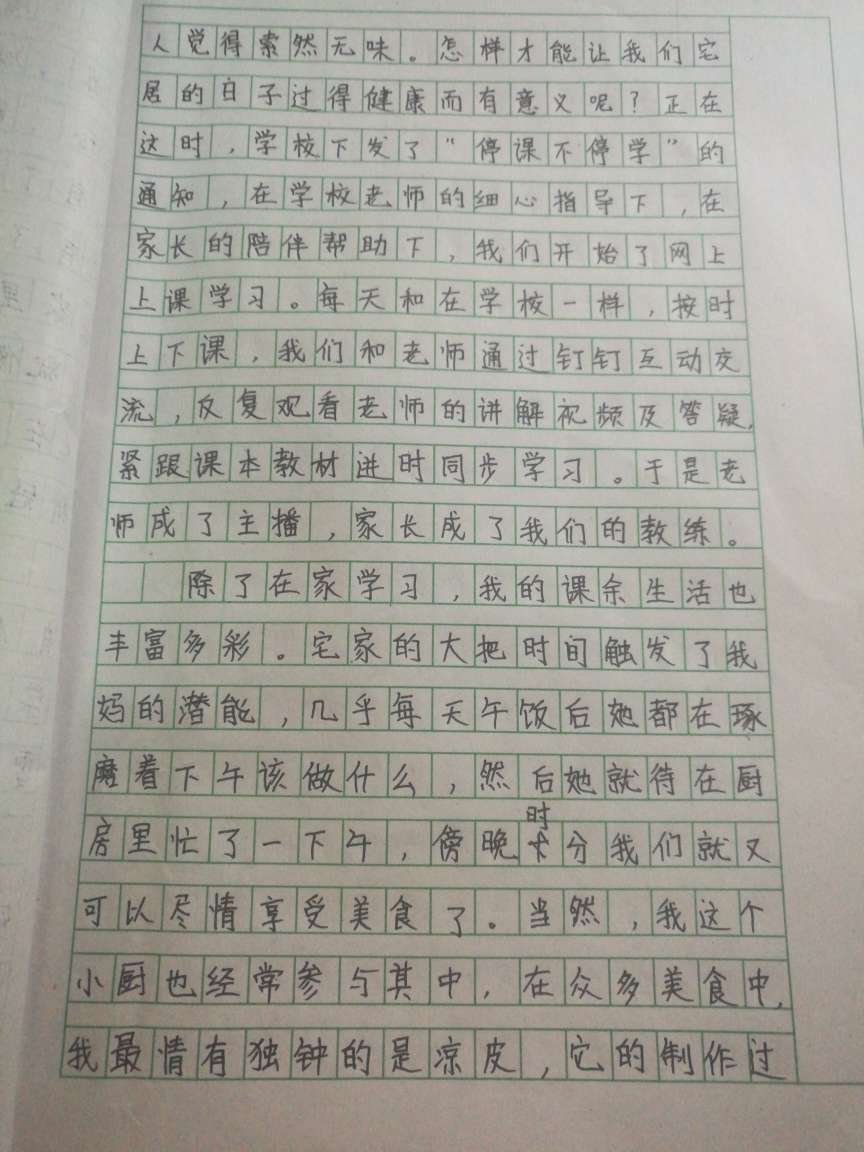 人觉得索然无味。怎样才能让我们宅
居的日子过得健康而有意义呢？正在
这时，学校下发了“停课不停学”的
通知，在学校老师的细心指导下，在
家长的陪伴帮助下，我们开始了网上
上课学习。每天和在学校一样，按时
上下课，我们和老师通过钉钉互动交
流，反复观看老师的讲解视频及答疑，
紧跟课本教材进时同步学习。于是老
师成了主播，家长成了我们的教练。
除了在家学习，我的课余生活也
丰富多彩。宅家的大把时间触发了我
妈的潜能，几乎每天午饭后她都在琢
磨着下午该做什么，然后她就待在厨
房里忙了一下午，傍晚时分我们就又
可以尽情享受美食了。当然，我这个
小厨也经常参与其中，在众多美食中，
我最情有独钟的是凉皮，它的制作过